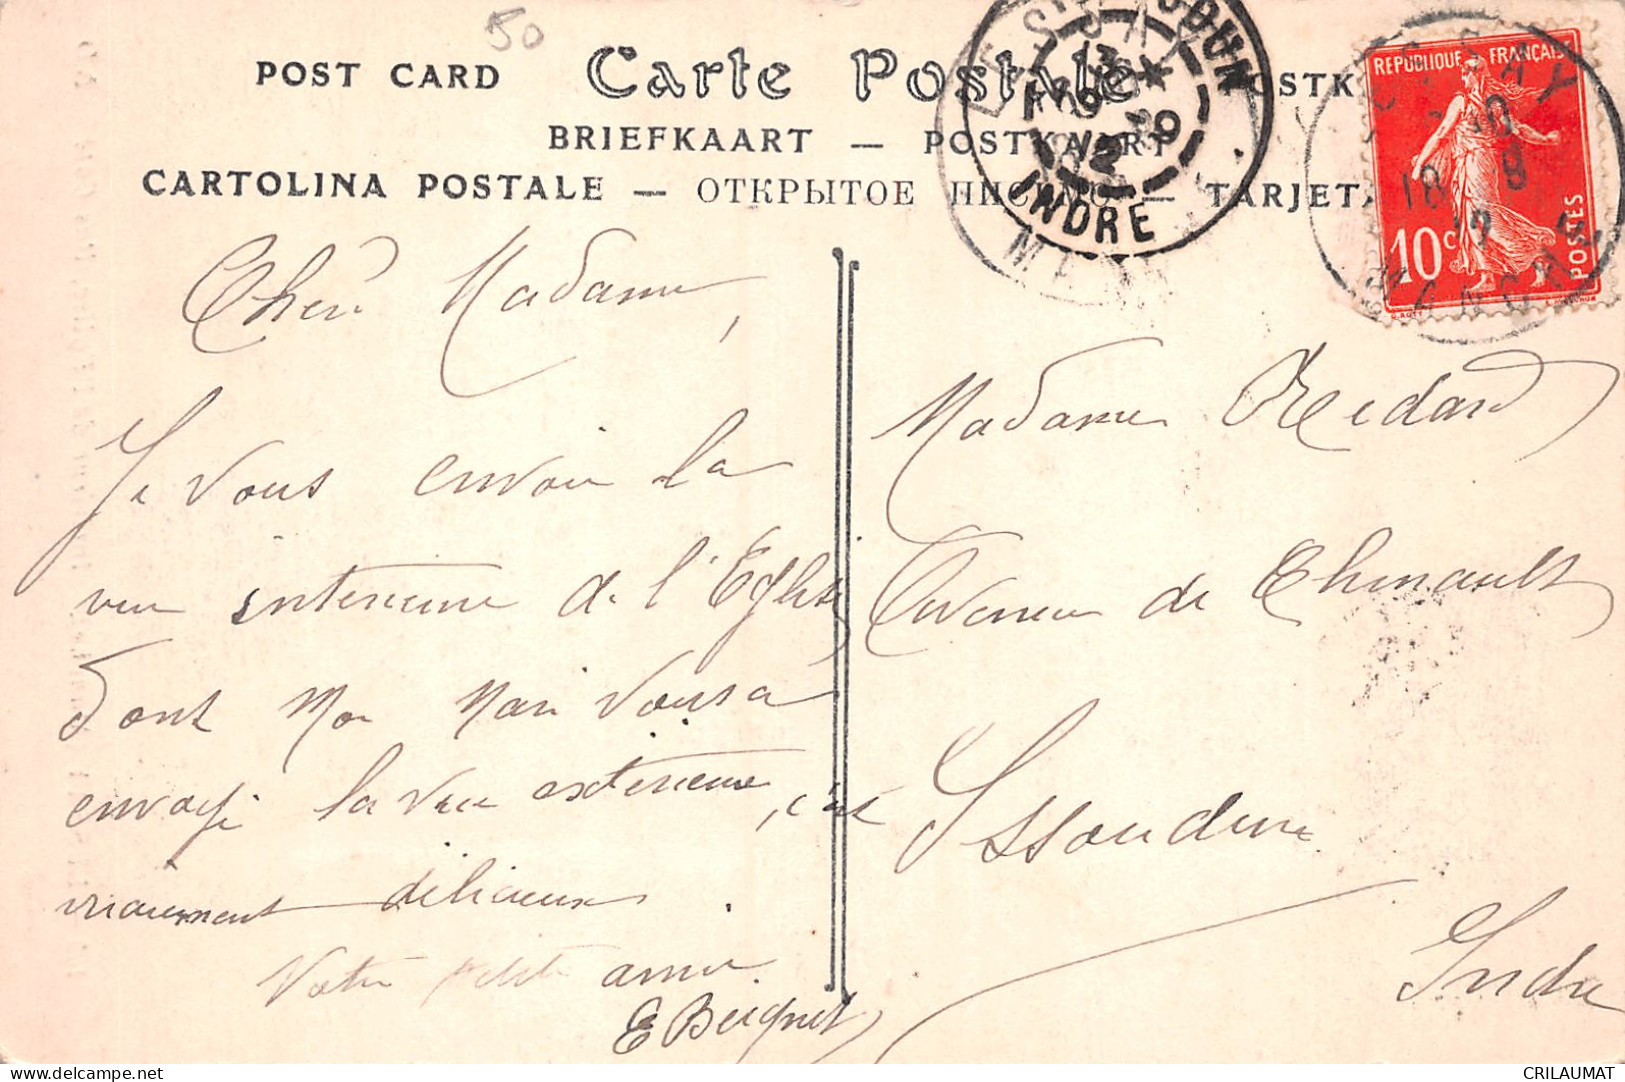 50
POST CARD Carte Postale POSTK
BRIEFKAART — POSTKAART
CARTOLINA POSTALE — ОТКРЫТОЕ ПИСЬМО — TARJET
REPUBLIQUE FRANÇAISE
10c
POSTES
INDRE
Chère Madame,
Je vous envoie la
vue interieure de l'Eglise
dont mon mari vous a
envoyé la vue exterieure, c'est
vraiement délicieux
Votre petite amie
E Beignet
Madame Redard
Avenue de Chinault
Issoudun
Indre
CRILAUMAT